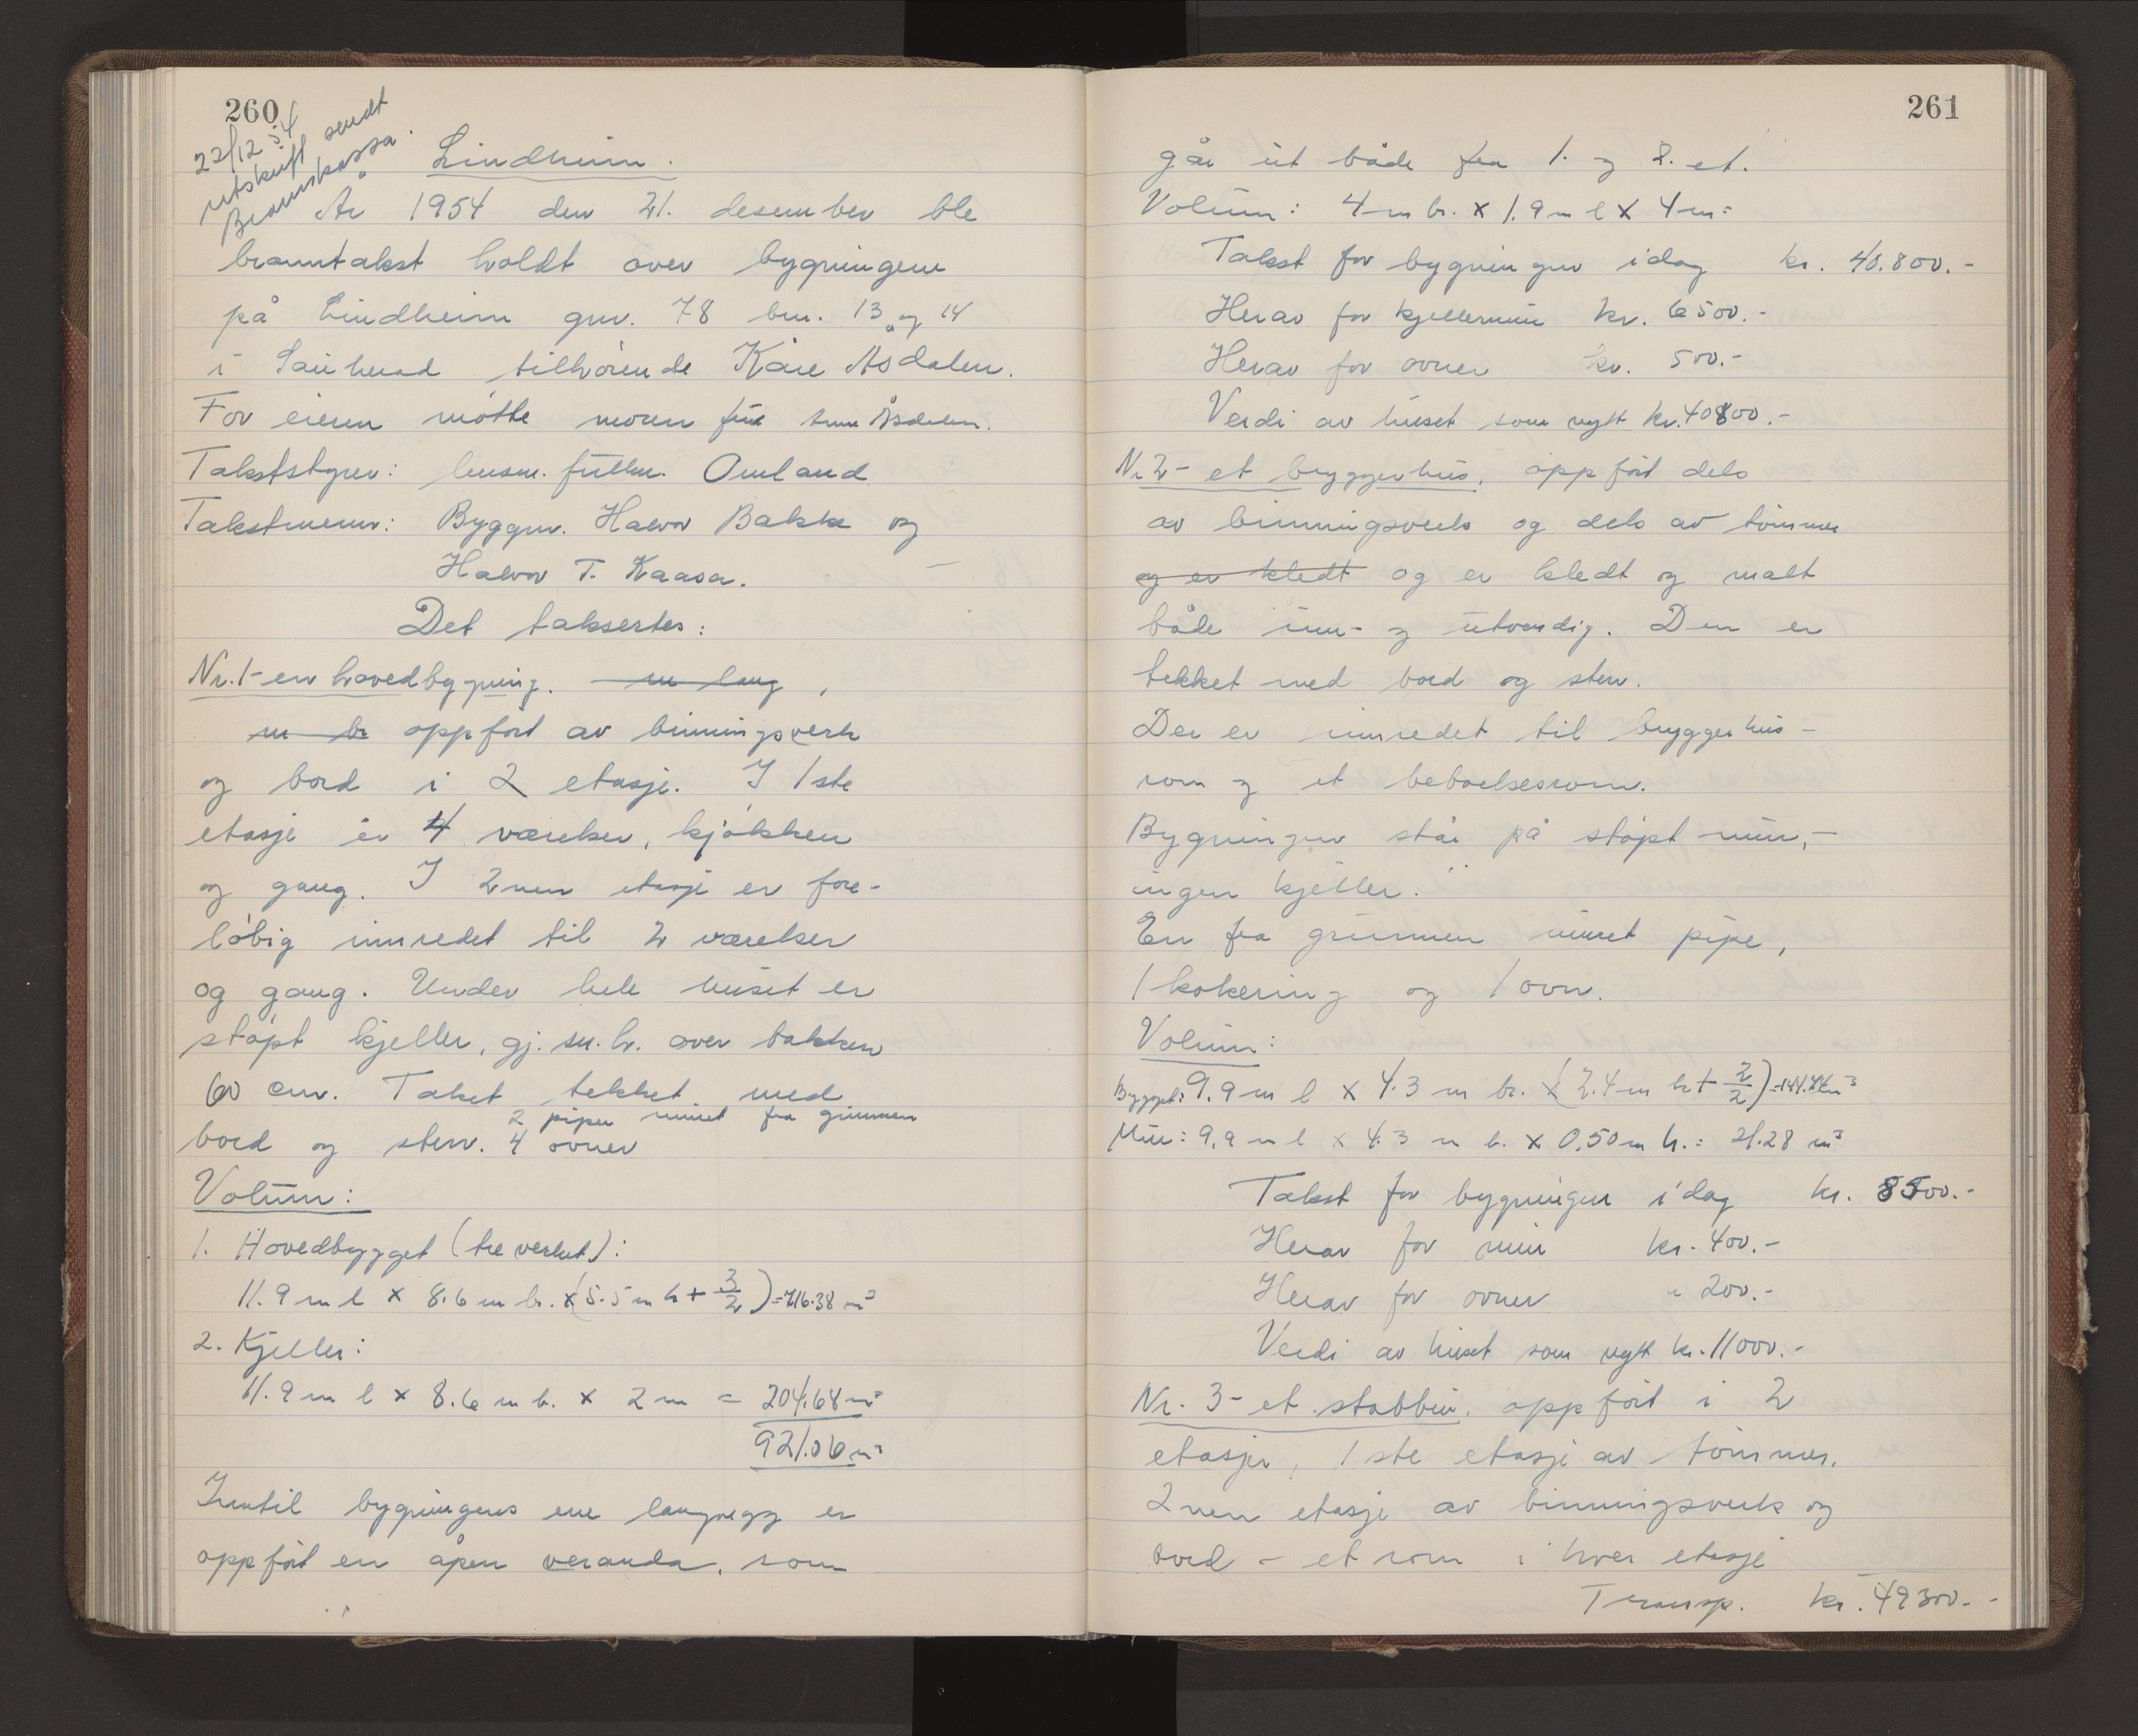 260
22/12 54
utskrift sendt
Brannkassa.
Lindheim.
År 1954 den 21. desember ble
branntakst holdt over bygningene
på Lindheim gnr. 78 bnr. 13 og 14
i Sauherad tilhörende Kåre Åsdalen.
For eieren mötte moren fru Åsdalen.
Takststyrer: lensm. fullm. Omland
Takstmenn: Byggm. Halvor Bakke og
Halvor T. Kaasa.
Det taksertes:
Nr. 1 - en hovedbygning. m lang,
m br oppfört av binningsverk
og bord i 2 etasje. I 1ste
etasje er 4 værelser, kjökken
og gang. I 2nen etasje er fore-
löbig innredet til 2 værelser
og gang. Under hele huset er
stöpt kjeller, gj. sn. h. over bakken
60 cm. Taket tekket med
2 piper muret fra grunnen
bord og sten. 4 ovner
Volum:
1. Hovedbygget (treverket):
11.9 m l x 8.6 m br. x (5.5 m h + 3/2) = 716.38 m³
2. Kjeller:
11.9 m l x 8.6 m b. x 2 m = 204.68 m³
921.06 m³
Inntil bygningens ene langvegg er
oppfört en åpen veranda, som
261
går ut både fra 1. og 2. et.
Volum: 4 m br. x 1.9 m l x 4 m =
Takst for bygningen idag kr. 40.800.-
Herav for kjellermur kr. 6500.-
Herav for ovner kr. 500.-
Verdi av huset som nytt kr. 40800.-
Nr 2 - et bryggerhus, oppfört dels
av binningsverk og dels av tömmer
og er kledt og er kledt og malt
både inn- og utvendig. Den er
tekket med bord og sten.
Der er innredet til bryggerhus-
rom og et beboelsesrom.
Bygningen står på stöpt mur,-
ingen kjeller.
En fra grunnen muret pipe,
1 kokering og 1 ovn.
Volum:
Bygget: 9.9 m l x 4.3 m br. x (2.4 m h + 2/2) = 144.74 m³
Mur: 9.9 m l x 4.3 m b. x 0.50 m h. = 21.28 m³
Takst for bygningen idag kr. 8500.-
Herav for mur kr. 400.-
Herav for ovner " 200.-
Verdi av huset som nytt kr. 11000.-
Nr. 3 - et stabbur, oppfört i 2
etasjer, 1ste etasje av tömmer,
2nen etasje av binningsverk og
bord - et rom i hver etasje
Transp. kr. 49300.-